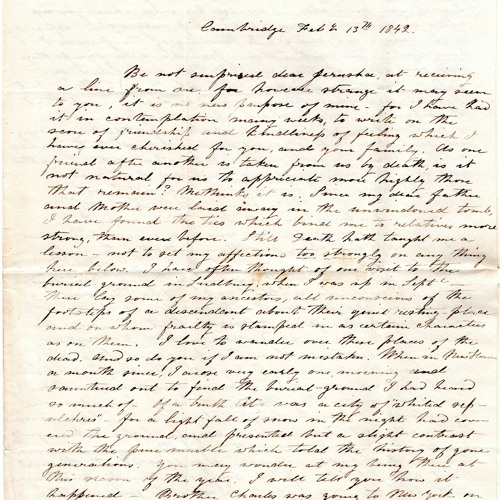 Cambridge Feb. 13th 1842.
Be not surprised dear Jerusha, at receiving
a line from me, for however strange it may seem
to you, it is no new purpose of mine - for I have had
it in contemplation many weeks, to write on the
score of friendship and kindliness of feeling which I
have ever cherished for you, and your family. As one
friend after another is taken from us by death, is it
not natural for us to appriciate more highly those
that remain? Methinks it is. Since my dear father
and Mother were laid away in the unwindowed tomb,
I have found the ties which bind me to relatives more
strong, than ever before. Still Death hath taught me a
lesson - not to set my affections too strongly on any thing
here below. I have often thought of our visit to the
buried ground in Sudbury, when I was up in Sept
There lay some of my ancestors, all unconscious of the
footsteps of a descendant about their quiet resting place
and on whom frailty is stamped in as certain characters
as on them. I love to wander over these places of the
dead. And so do you if I am not mistaken. When in
a month since, I arose very early one morning and
sauntered out to find the burial-ground I had heard
so much of. Of a truth it was a city of "whited sep-
ulchres" for a light fall of snow in the night had cov-
ered the ground, and presented but a slight contrast
with the pure marble which told the history of gone
generations. You may wonder at my being there, at
this season of the year. I will tell you how it
happened - Brother Charles was going to New York on